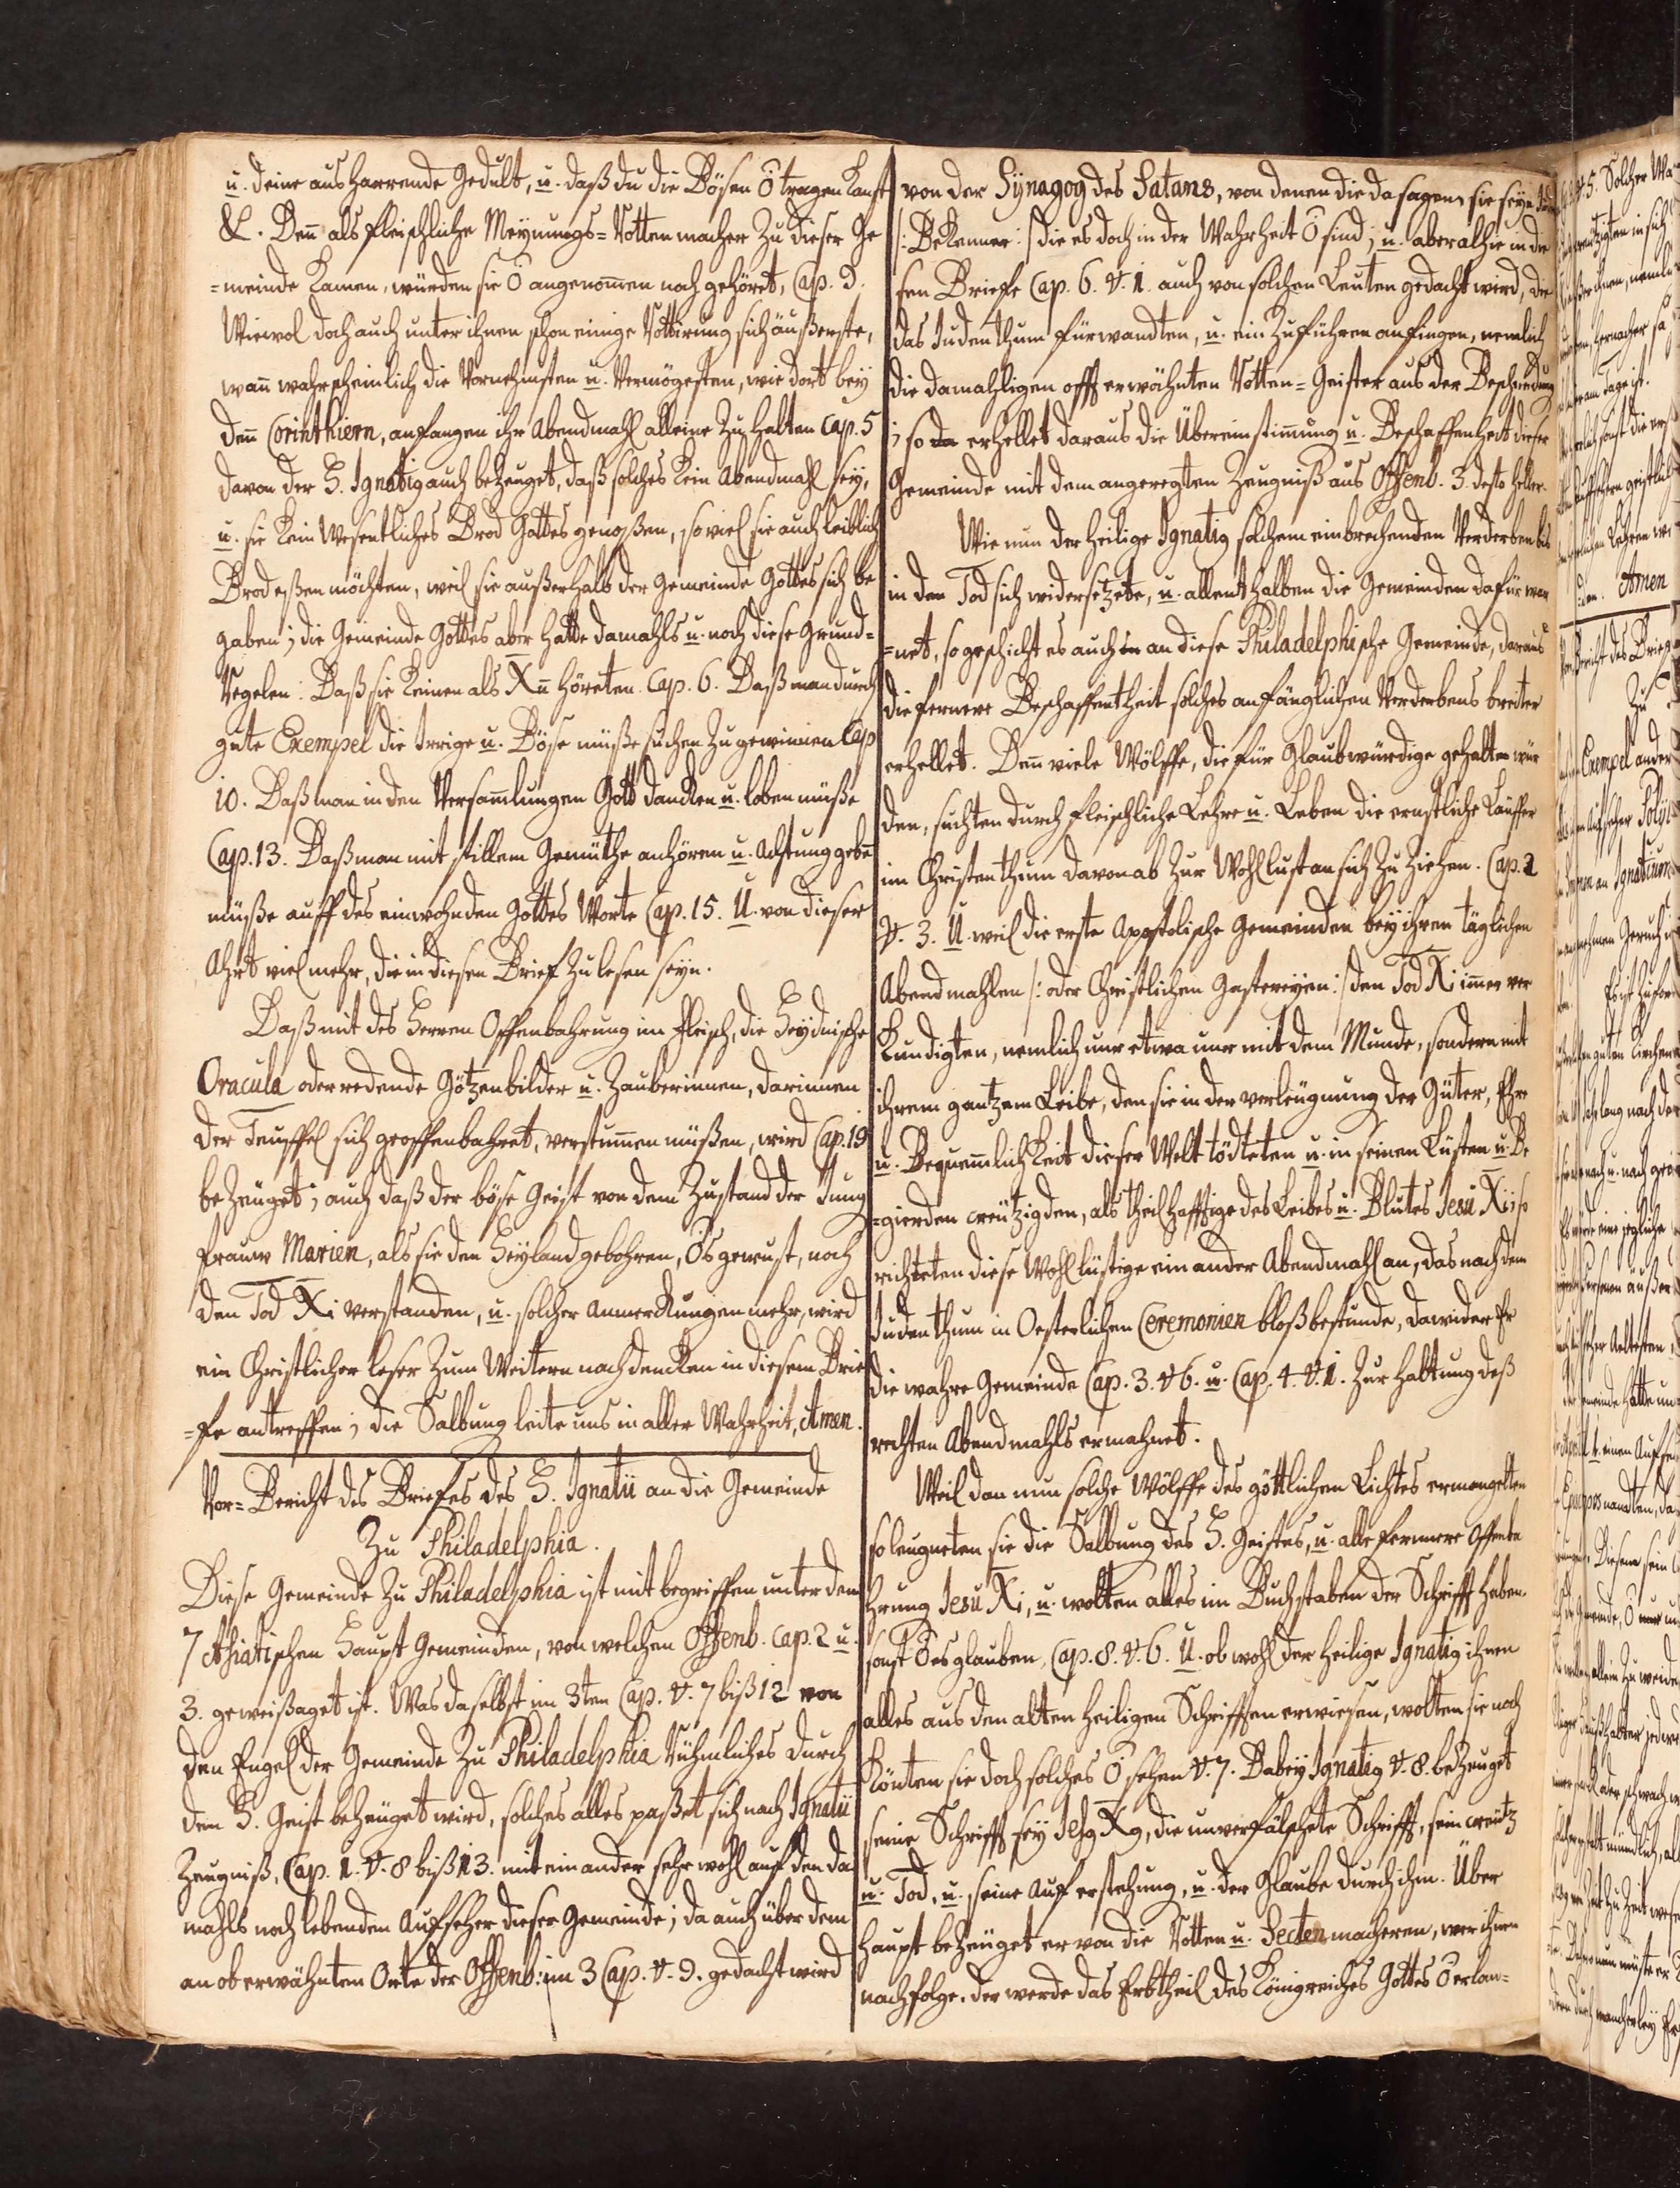 u. deine ausharrende Gedult, u. daß du die Bösen Ö tragen kanst
&c. Deñ als fleischliche Meynungs-Rottenmacher zu dieser Ge
=meinde kamen, würden sie Ö angenom̃en noch gehöret, Cap. 9.
Wiewol doch auch unter ihnen schon einige Rottirung sich äußerste,
wañ wahrscheinlich die Vornehmsten u. Vermögesten, wie dort bey
deñ Corinthiern, anfangen ihr Abendmahl alleine zu halten Cap. 5
davon der H. Ignatig auch bezeuget, daß solches kein Abendmahl sey,
u. sie kein Wesentliches Brod Gottes genoßen, so viel sie auch leiblich
Brod eßen möchten, weil sie außerhalb der Gemeinde Gottes sich be
gaben; die Gemeinde Gottes aber hatte damahls u. noch diese Grund=
Regelen: Daß sie keinen als Xũ höreten. Cap. 6. Daß man durch
gute Exempel die Irrige u. Böse müße suchen zu gewinnen Cap
10. Daß man in den Versam̃lungen Gott dancken u. loben müße
Cap. 13. Daß man mit stillem Gemüthe anhören u. Achtung gebẽ
müße auff des einwohnden Gottes Worte Cap. 15. U. von dieser
Ahrt viel mehr, die in diesen Brief zu lesen seyn.
Daß mit des Herren Offenbahrung im Fleisch, die Heydnische
Oracula oder redende Götzenbilder u. Zauberinnen, darinnen
der Teuffel sich geoffenbahret, verstum̃en müßen, wird Cap. 19
bezeuget; auch daß der böse Geist von dem Zustand der Jung
frauw Marien, als sie den Heyland gebohren, Ös gewust, noch
den Tod Xi verstanden, u. solcher Anmerckungen mehr, wird
ein Christlicher leser zum Weitern nachdencken in diesem Brie
=fe antreffen; die Salbung leite uns in aller Wahrheit, Amen.
Vor=Bericht des Briefes des H. Ignatii an die Gemeinde
Zu Philadelphia.
Diese Gemeinde zu Philadelphia ist mit begriffen unter den
7 Asiatischen Haupt Gemeinden, von welchen Offenb. Cap. 2 u.
3. geweißaget ist. Was daselbst im 3ten Cap. v. 7 biß 12 von
den Engel der Gemeinde zu Philadelphia Rühmliches durch
den H. Geist bezeuget wird, solches alles paßet sich nach Ignatii
Zeugniß, Cap. 1. v. 8 biß 13. mit einander sehr wohl auf den da
mahls noch lebenden Aufseher dieser Gemeinde; da auch über dem
an ob erwähnten Orte der Offenb: im 3 Cap. v. 9. gedacht wird
von der Synagog des Satans, von denen die da sagen, sie seyn
/: Bekenner :/ die es doch in der Wahrheit Ö sind; u. aber alhie in die
sen Briefe Cap. 6. v. 1. auch von solchen Leuten gedacht wird, die
das Judenthum fürwandten, u. ein zuführen anfingen, nemlich
die damahligen offt erwähnten Rotten=Geister aus der Beschneidung
; so erhellet daraus die Übereinstim̃ung u. Beschaffenheit dieser
Gemeinde mit dem angeregten Zeugniß aus Offenb. 3. desto heller.
Wie nun der heilige Ignatig solchem einbrechenden Verderben bis
in den Tod sich widersetzete, u. allenthalben die Gemeinden dafür war
=net, so geschicht es auch an diese Philadelphische Gemeinde, daraus
die fernere Beschaffentheit solches anfänglichen Verderbens breiter
erhellet. Deñ viele Wölffe, die für Glaubwürdige gehalten wür
den, suchten durch fleischliche Lehre u. Leben die ernstliche Läuffer
im Christenthum davon ab zur Wohllust an sich zu ziehen. Cap. 2
v. 3. U. weil die erste Apostolische Gemeinden bey ihren täglichen
Abendmahlen /: oder Christlichen Gastereyen :/ den Tod Xi im̃er ver
kundigten, nemlich nur etwa nur mit dem Munde, sondern mit
ihrem gantzem Leibe, den sie in der verleugnung der Güter, Ehre
u. Bequem̃lichkeit dieser Welt tödteten u. in seinen Lüsten u. Be
=gierden creutzigden, als theilhafftige des Leibes u. Blutes Jesu Xi; so
richteten diese Wohllüstige ein ander Abendmahl an, das nach dem
Judenthum in Oesterlichen Ceremonien bloß bestunde, dawider Er
die wahre Gemeinde Cap. 3. v 6. u. Cap. 4. v. 1. zur haltung deß
rechten Abendmahls ermahnet.
Weil dan nun solche Wölffe des göttlichen Lichtes ermangelten
so leugneten sie die Salbung des H. Geistes, u. alle fernnere Offenba
hrung Jesu Xi, u. wolten alles im Buchstaben der Schrifft haben
sonst Ö es glauben, Cap. 8. v. 6. U. ob wohl der heilige Ignatig ihnen
alles aus den alten heiligen Schrifften erwiesen, wolten sie noch
könten sie doch solches Ö sehen v. 7. Dabey Ignatig v. 8. bezeuget
seine Schrifft sey Jesg Xg, die unverfälschete Schrifft, sein creutz
u. Tod, u. seine Auferstehung, u. der Glaube durch ihm. Über
haupt bezeuget er von die Rotten u. Secten macheren, wer ihnen
nachfolge, der werde das Erbtheil des Königreiches Gottes Ö erlan=